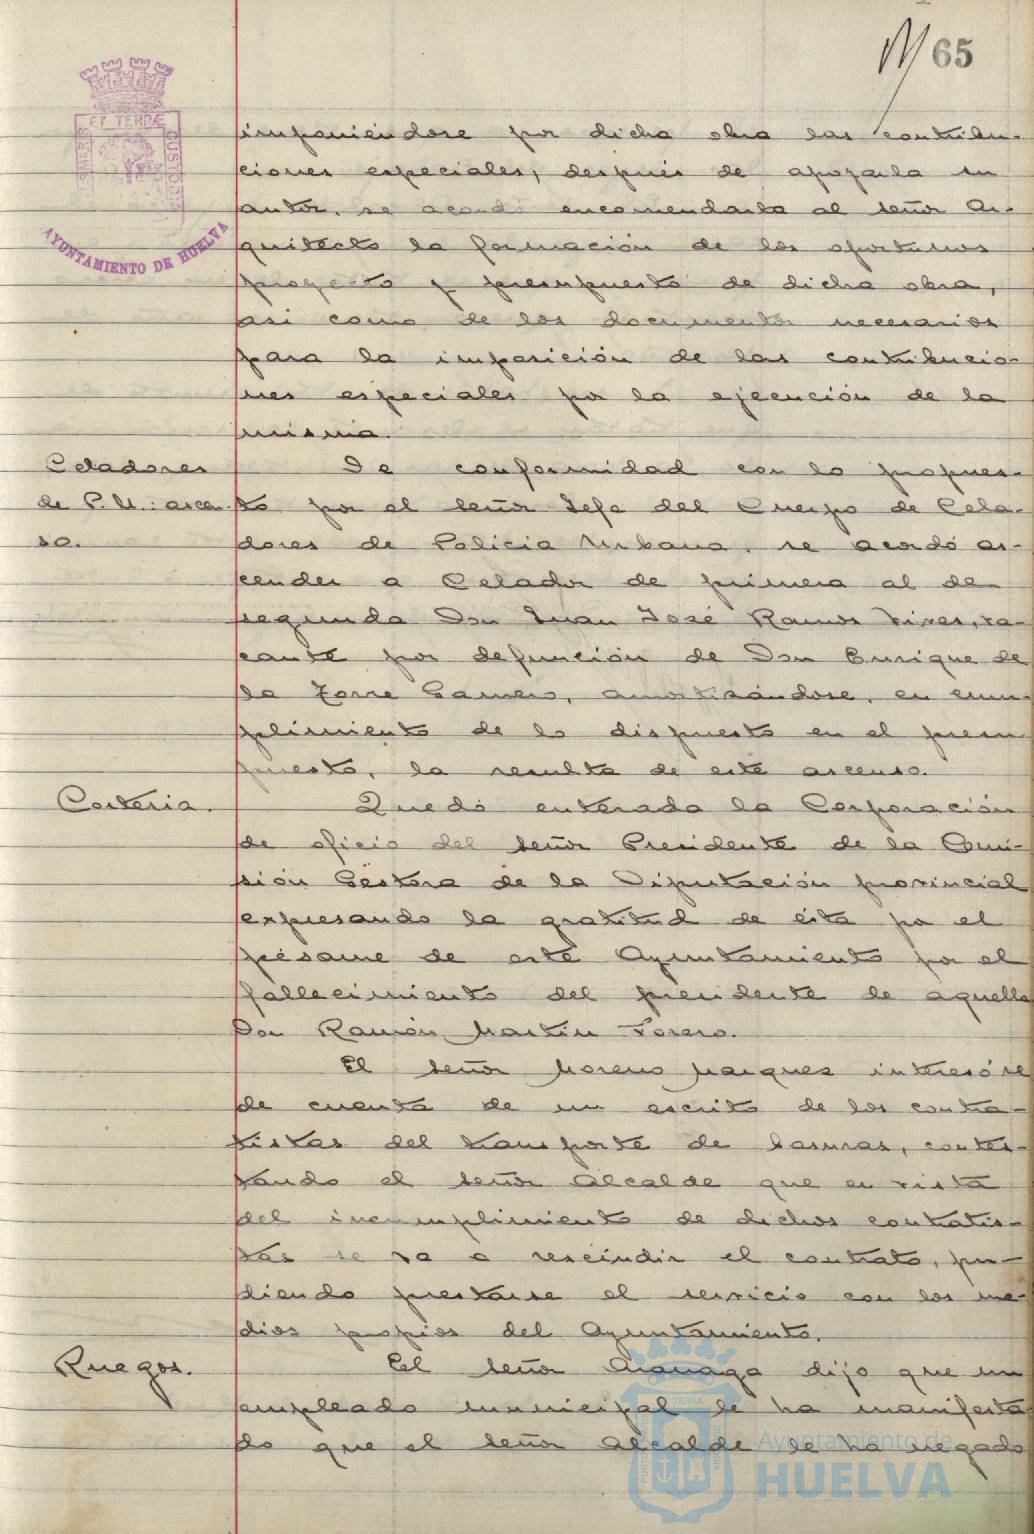 65
PORTUS MARIS ET TERRÆ CUSTODIA
AYUNTAMIENTO DE HUELVA
imponiéndose por dicha obra las contribu-
ciones especiales, después de apoyarla su
autor, se acordó encomendarla al señor Ar-
quitecto la formación de los oportunos
proyecto y presupuesto de dicha obra,
asi como de los documentos necesarios
para la imposición de las contribucio-
nes especiales por la ejecución de la
misma.
Celadores
de P. U.: ascen-
so.
De conformidad con lo propues-
to por el señor Jefe del Cuerpo de Cela-
dores de Policia Urbana, se acordó as-
cender a Celador de primera al de
segunda Don Juan José Ramos Vives, va-
cante por defunción de Don Enrique de
la Torre Gamero, amortizándose, en cum-
plimiento de lo dispuesto en el presu-
puesto, la resulta de este ascenso.
Cortesia.
Quedó enterada la Corporación
de oficio del señor Presidente de la Comi-
sión Gestora de la Diputación provincial
expresando la gratitud de ésta por el
pésame de este Ayuntamiento por el
fallecimiento del presidente de aquella
Don Ramón Martin Forero.
El señor Moreno Marquez interesó se
de cuenta de un escrito de los contra-
tistas del transporte de basuras, contes-
tando el señor Alcalde que en vista
del incumplimiento de dichos contratis-
tas se va a rescindir el contrato, pu-
diendo prestarse el servicio con los me-
dios propios del Ayuntamiento.
Ruegos.
El señor dijo que un
empleado municipal le ha manifesta-
do que el señor Alcalde le ha negado
Ayuntamiento de
HUELVA